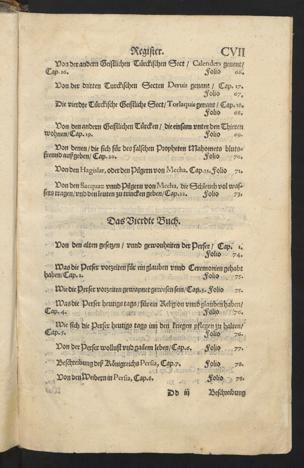 Register. CVII
Von der andern Geistlichen Türckischen Sect / Calenders genent /
Cap. 16. Folio 66.
Von der dritten Turckischen Secten Deruis genant / Cap. 17.
Folio 67.
Die vierdte Türckische Geistliche Sect / Torlaquis genant / Cap. 18.
Folio 68.
Von den andern Geistlichen Türcken / die einsam vnter den Thieren
wohnen / Cap. 19. Folio 69.
Von denen / die sich für des falschen Propheten Mahomets bluts-
freund außgeben / Cap. 20. Folio 70.
Von den Hagislar, oder den Pilgern von Mecha, Cap. 21. Folio 71.
Von den Sacquaz vnnd Pilgern von Mecha, die Schleuch vol was-
sers tragen / vnd den leuten zu trincken geben / Cap. 22. Folio 73.
Das Vierdte Buch.
Von den alten gesetzen / vnnd gewonheiten der Perser / Cap. 1.
Folio 74.
Was die Perser vorzeiten für ein glauben vnnd Ceremonien gehabt
haben / Cap. 2. Folio 75.
Wie die Perser vorzeiten gewapnet gewesen sein / Cap. 3. Folio 75.
Was die Perser heutigs tags / für ein Religion vnnd glauben haben /
Cap. 4. Folio 76.
Wie sich die Perser heutigs tags inn den kriegen pflegen zu halten /
Cap. 5. Folio 77.
Von der Perser wollust vnd gailem leben / Cap. 6. Folio 77.
Beschreibung deß Königreichs Persia, Cap. 7. Folio 78.
Von den Weibern in Persia, Cap. 8. Folio 78.
Dd iij Beschreibung